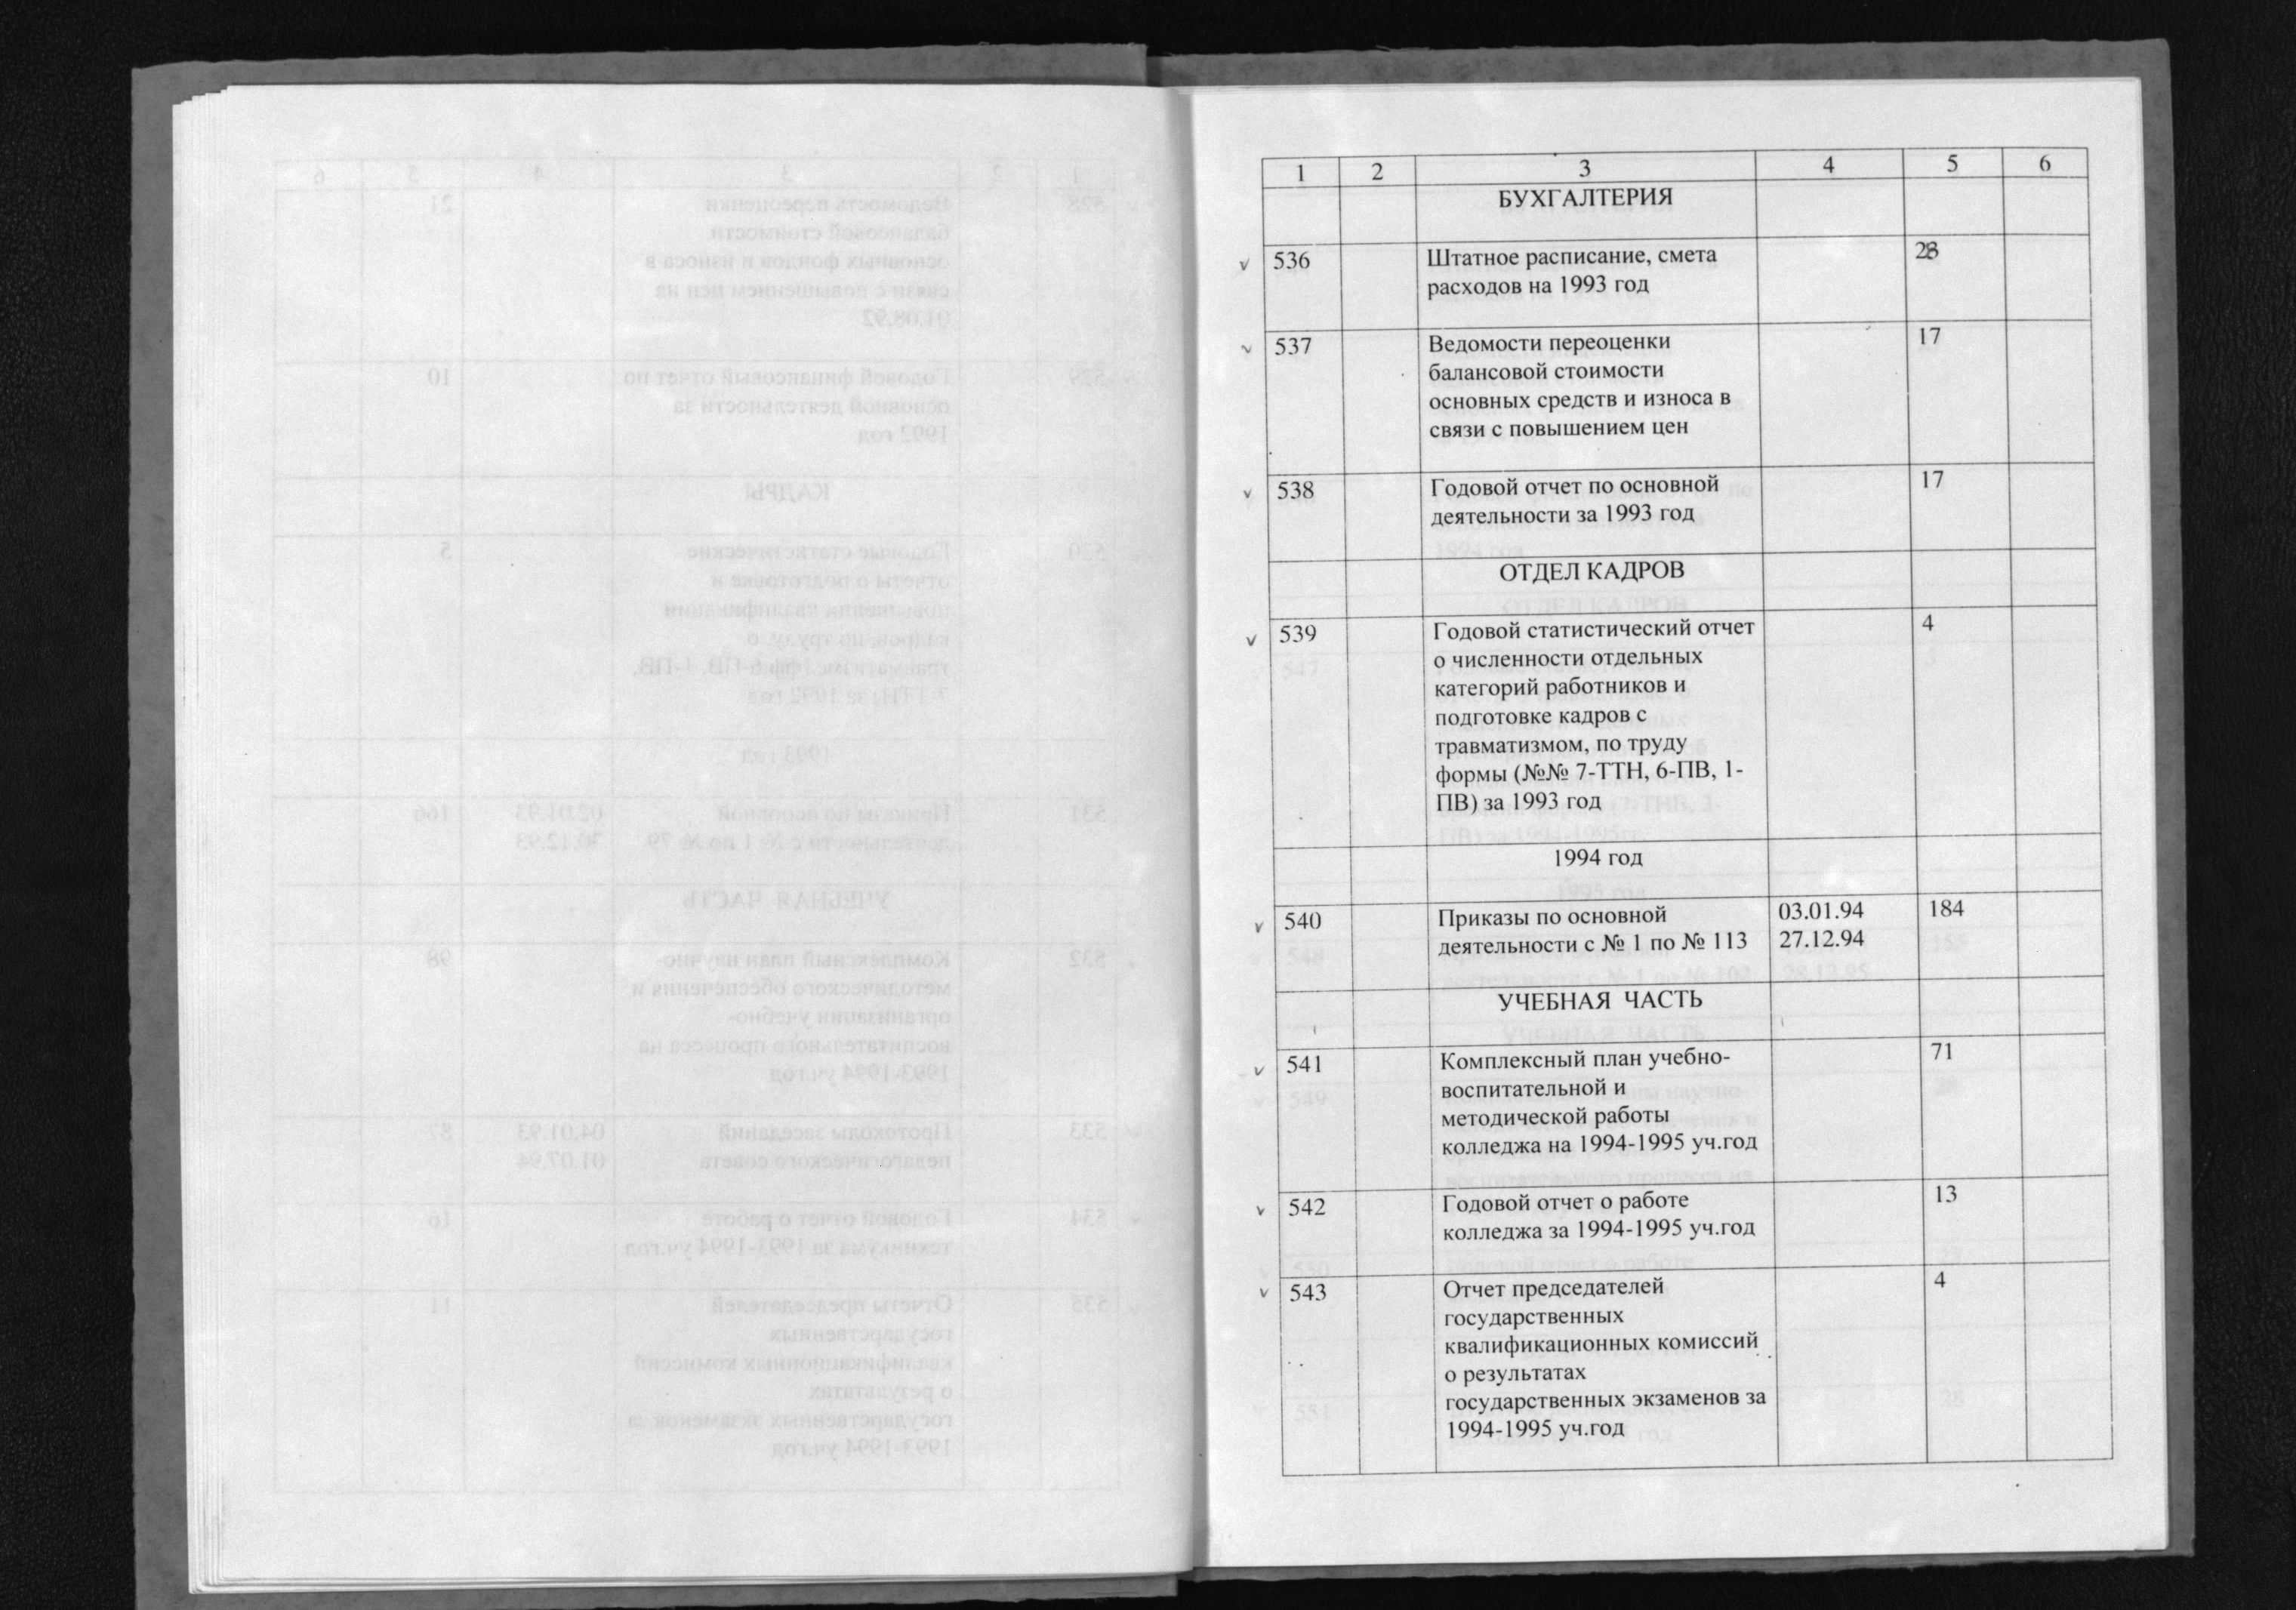 1 2 3 4 5 6
БУХГАЛТЕРИЯ
536 Штатное расписание, смета 28
расходов на 1993 год
537 Ведомости переоценки 17
балансовой стоимости
основных средств и износа в
связи с повышением цен
538 Годовой отчет по основной 17
деятельности за 1993 год
ОТДЕЛ КАДРОВ
539 Годовой статистический отчет 4
о численности отдельных
категорий работников и
подготовке кадров с
травматизмом, по труду
формы (№№ 7-ТТН, 6-ПВ, 1-
ПВ) за 1993 год
1994 год
540 Приказы по основной 03.01.94 184
деятельности с № 1 по № 113 27.12.94
УЧЕБНАЯ ЧАСТЬ
541 Комплексный план учебно- 71
воспитательной и
методической работы
колледжа на 1994-1995 уч.год
542 Годовой отчет о работе 13
колледжа за 1994-1995 уч.год
543 Отчет председателей 4
государственных
квалификационных комиссий
о результатах
государственных экзаменов за
1994-1995 уч.год